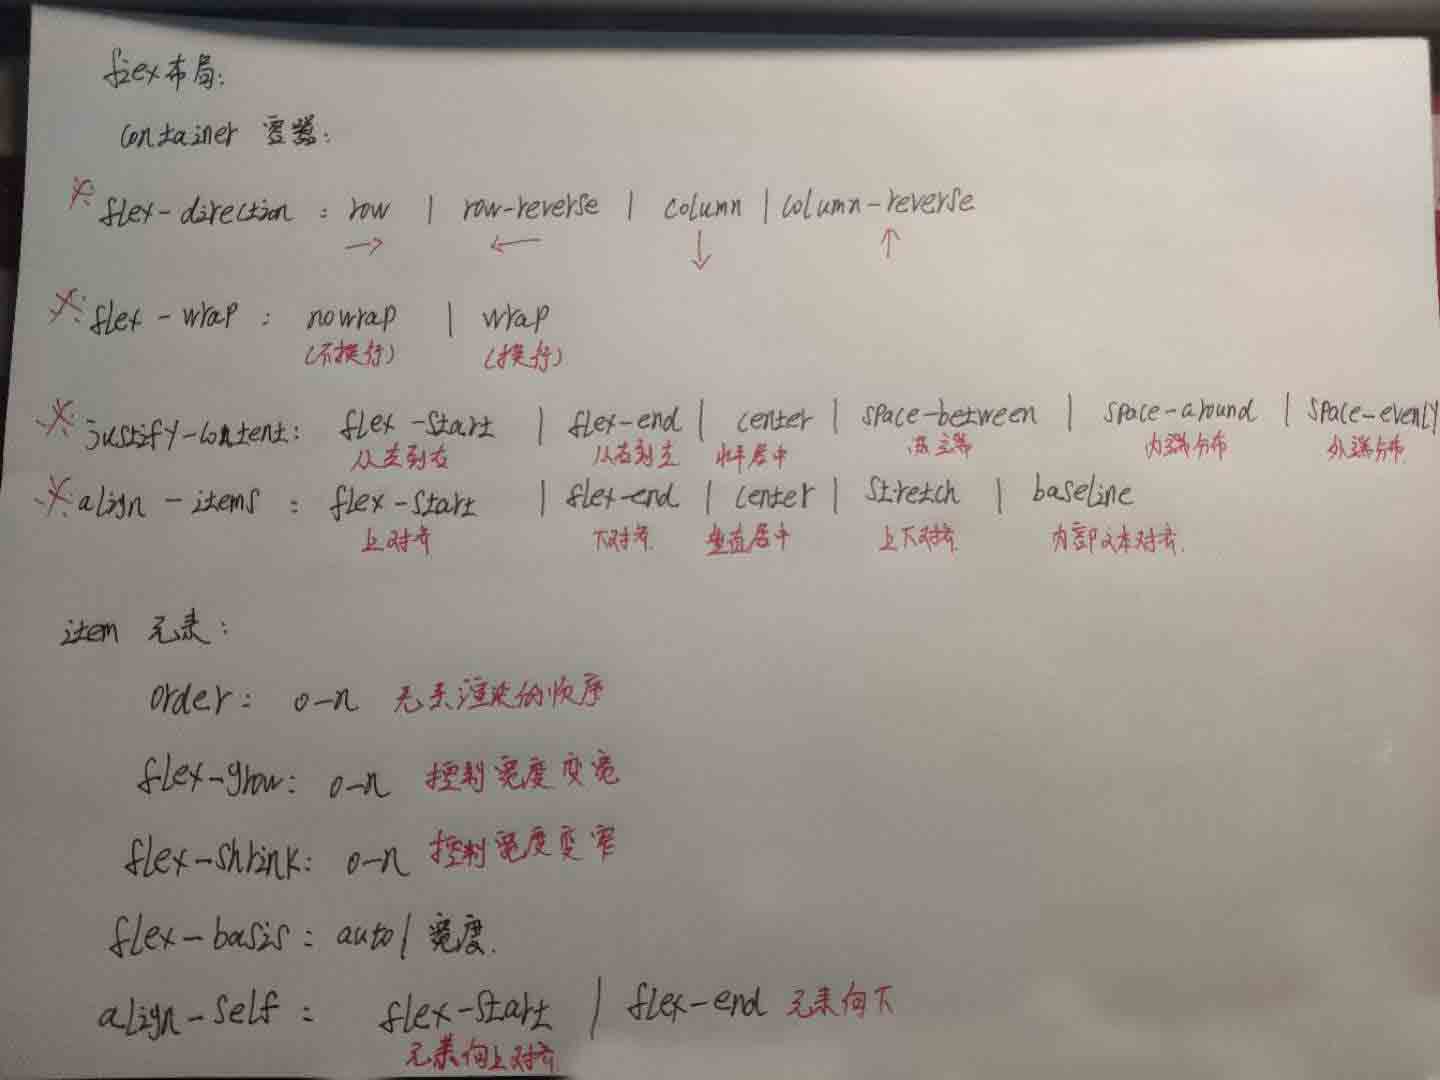 flex布局:
container 容器:
※: flex-direction : row | row-reverse | column | column-reverse
→ ← ↓ ↑
※: flex-wrap : nowrap | wrap
(不换行) (换行)
※: justify-content: flex-start | flex-end | center | space-between | space-around | space-evenly
从左到右 从右到左 水平居中 两端 内端分布 外端分布
※: align-items : flex-start | flex-end | center | stretch | baseline
上对齐 下对齐 垂直居中 上下对齐 内部文本对齐.
item 元素:
order: 0-n 元素渲染的顺序
flex-grow: 0-n 控制宽度变宽
flex-shrink: 0-n 控制宽度变窄
flex-basis: auto| 宽度.
align-self: flex-start | flex-end 元素向下
元素向上对齐